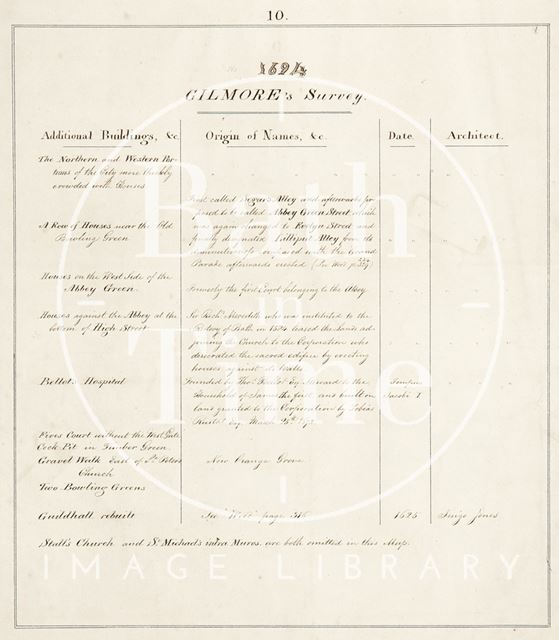 10.
1694
GILMORE's Survey.
Additional Buildings, &c. Origin of Names, &c. Date. Architect.
The Northern and Western Por-
tions of the City more thickly
crowded with Houses
First called Segar's Alley and afterwards
to be called Abbey Green Street which
A Row of Houses near the Old was again changed to Evelyn Street and
Bowling Green finally designated Lilliput Alley from its
compared with the Grand
Parade afterwards erected (See Wood p.
Houses on the West Side of the
Abbey Green. Formerly the first Court belonging to the Abbey
Houses against the Abbey at the Sir Richd Meredith who was instituted to the
bottom of High Street Rectory of Bath in 1584 leased the Lands ad-
joining the Church to the Corporation who
desecrated the sacred edifice by erecting
houses against its Walls
Bellot's Hospital Founded by Thos Bellot Esq Steward to the Tempus
Household of James the first and built on Jacobi I
land granted to the Corporation by
Esq March
Fives Court without the West Gate
Cock Pit in Timber Green
Gravel Walk East of St Peter's Now Orange Grove
Church
Two Bowling Greens
Guildhall rebuilt See Wood page 316 1625 Inigo Jones
Stall's Church and St Michael's intra Muros, are both omitted in this Map.
Bath
in
Time
IMAGE LIBRARY